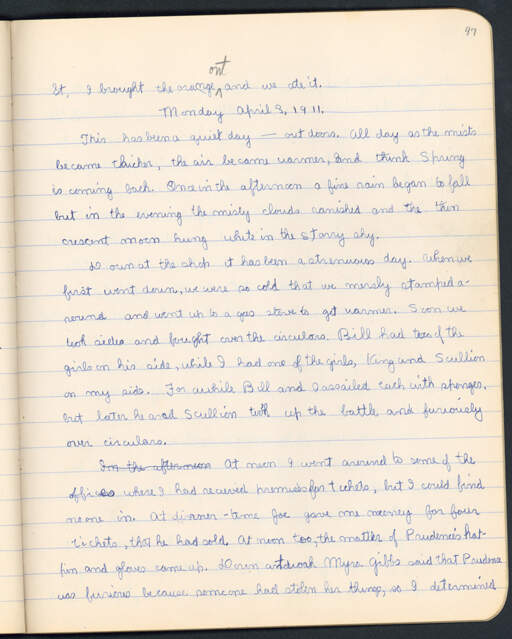 97
out
St, I brought the orange ^ and we ate it.
Monday April 3, 1911.
This has been a quiet day — out doors. All day as the mists
became thicker, the air became warmer, and think Spring
is coming back. Once in the afternoon a fine rain began to fall
but in the evening the misty clouds vanished and the thin
crescent moon hung white in the starry sky.
Down at the shop it has been a strenuous day. When we
first went down, we were so cold that we merely stamped a-
round and went up to a gas stove to get warmer. Soon we
took sides and fought over the circulars. Bill had two of the
girls on his side, while I had one of the girls, King and Scullion
on my side. For awhile Bill and I assailed each with sponges,
but later he and Scullion took up the battle and furiously
over circulars.
In the afternoon At noon I went around to some of the
offices where I had received promises for tickets, but I could find
no one in. At dinner-time Joe gave me money for four
tickets, that he had sold. At noon too, the matter of Prudence's hat-
pin and gloves came up. Down at work Myra Gibbs said that Prudence
was furious because someone had stolen her things, so I determined